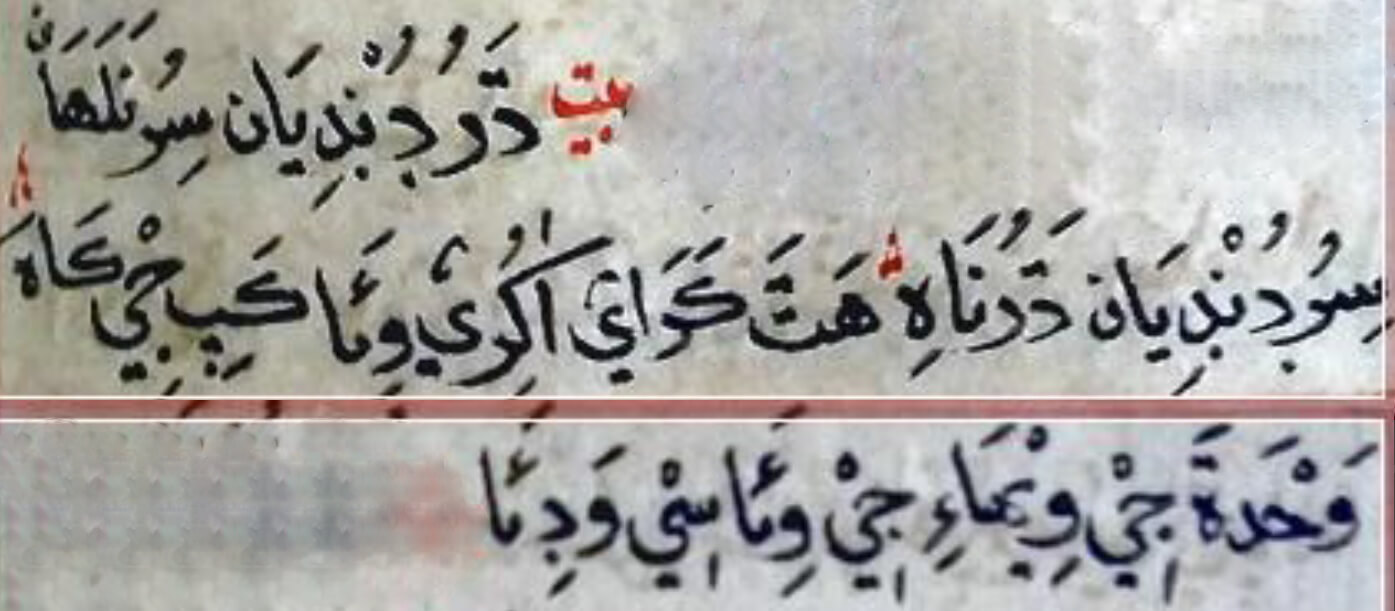 بيت دَّرُ دُنْڊِيَان سِرُ نَلَهَانْ
سِرُ دُنْڊِيَان دَّرُ نَاهِ هَتَّ كَرَايٌ اٰكُرِيٌ وِئَا كَپِجِيْ كَاہَ
وَحْدَةَ جِيْ وِيْهَاءِ جِيْ وِئَا سِيْ وَدِئَا